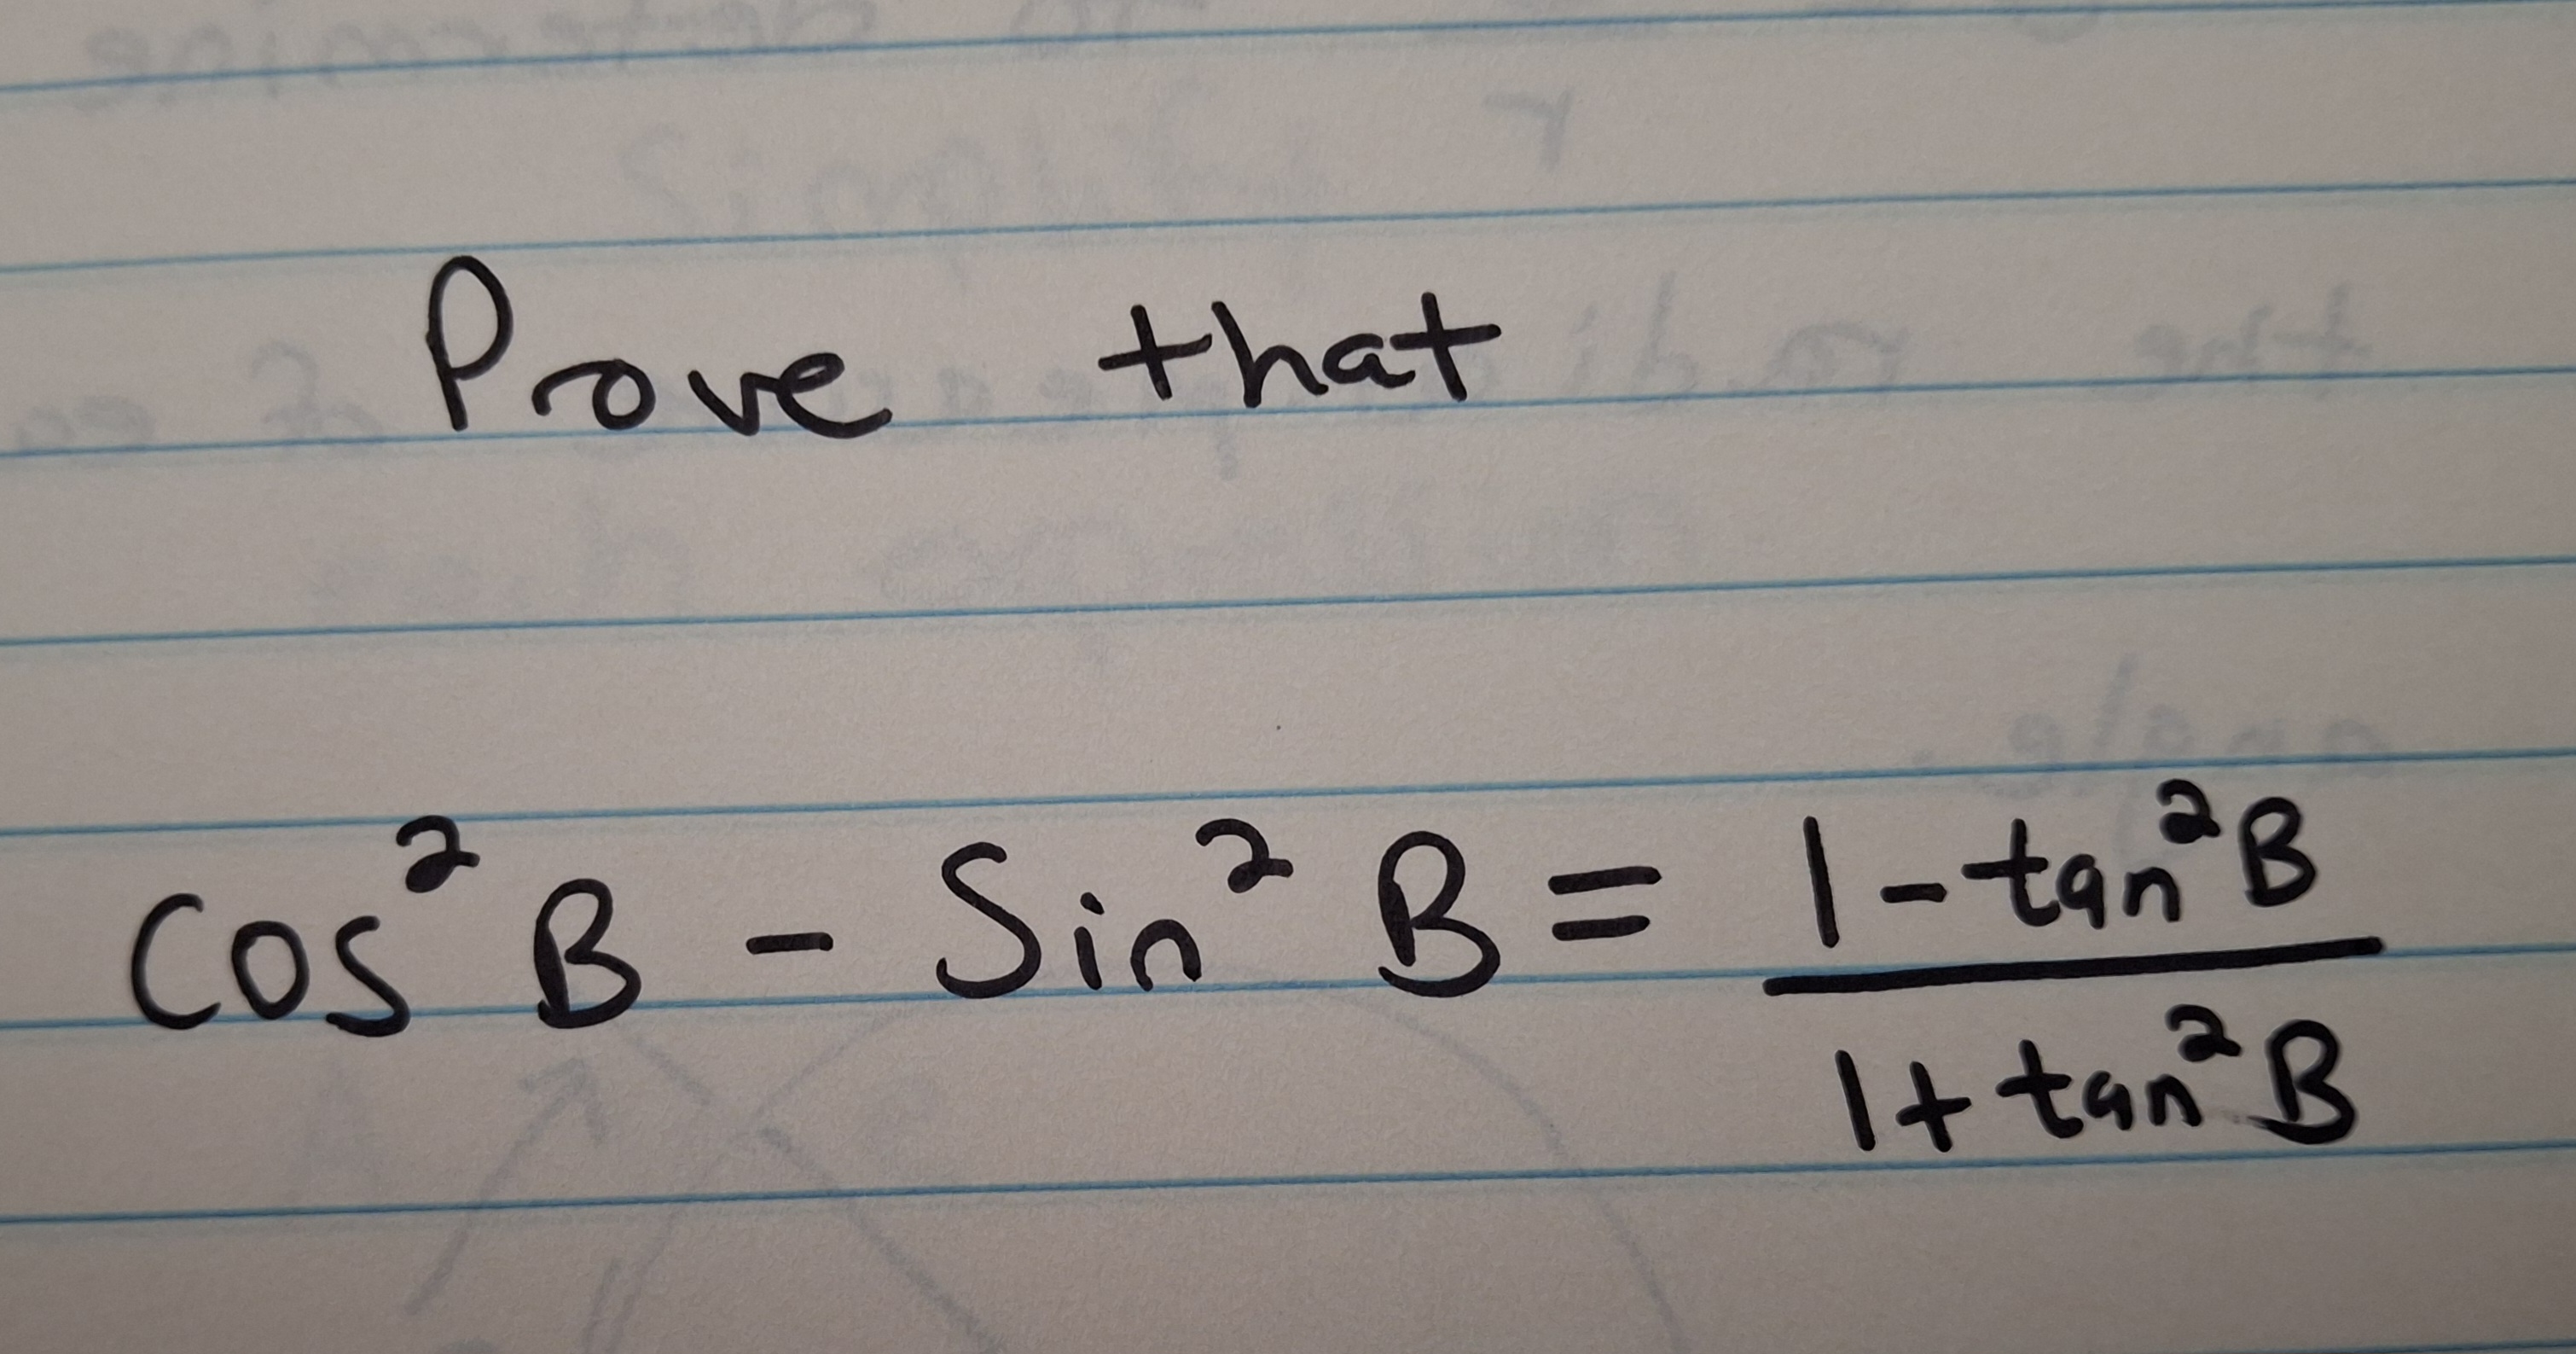 Prove that
Cos² B - Sin² B = 1 - tan² B / 1 + tan² B